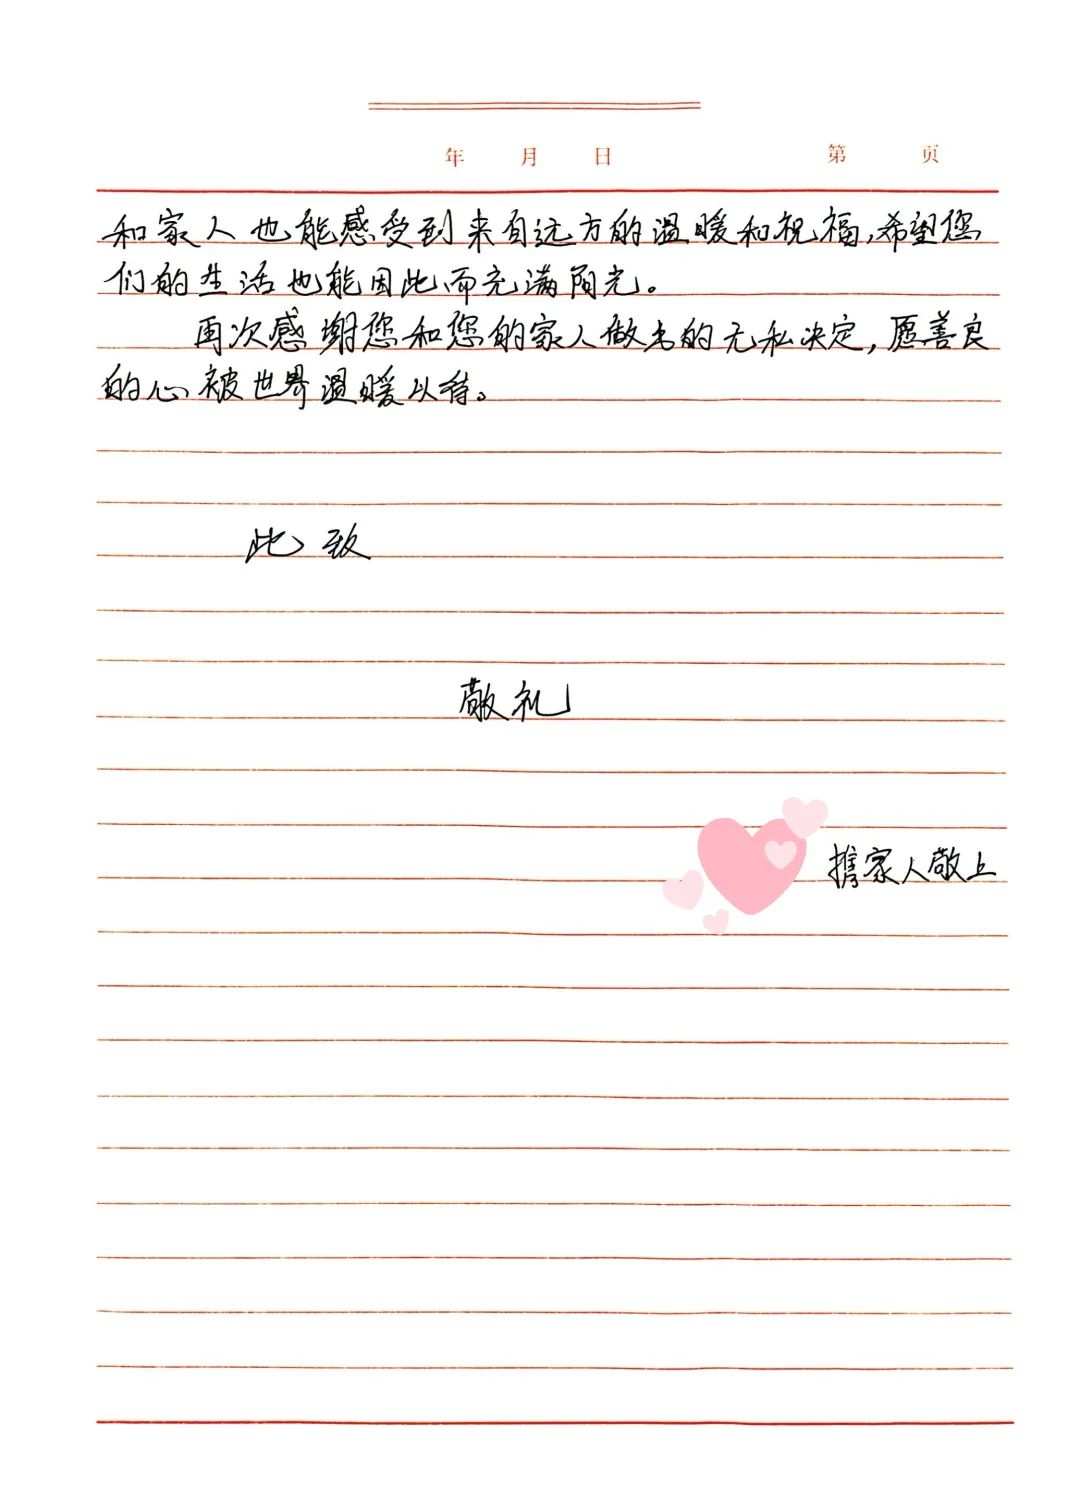 年 月 日 第 页
和家人也能感受到来自远方的温暖和祝福,希望您
们的生活也能因此而充满阳光。
再次感谢您和您的家人做出的无私决定,愿善良
的心被世界温暖以待。
此致
敬礼
携家人敬上